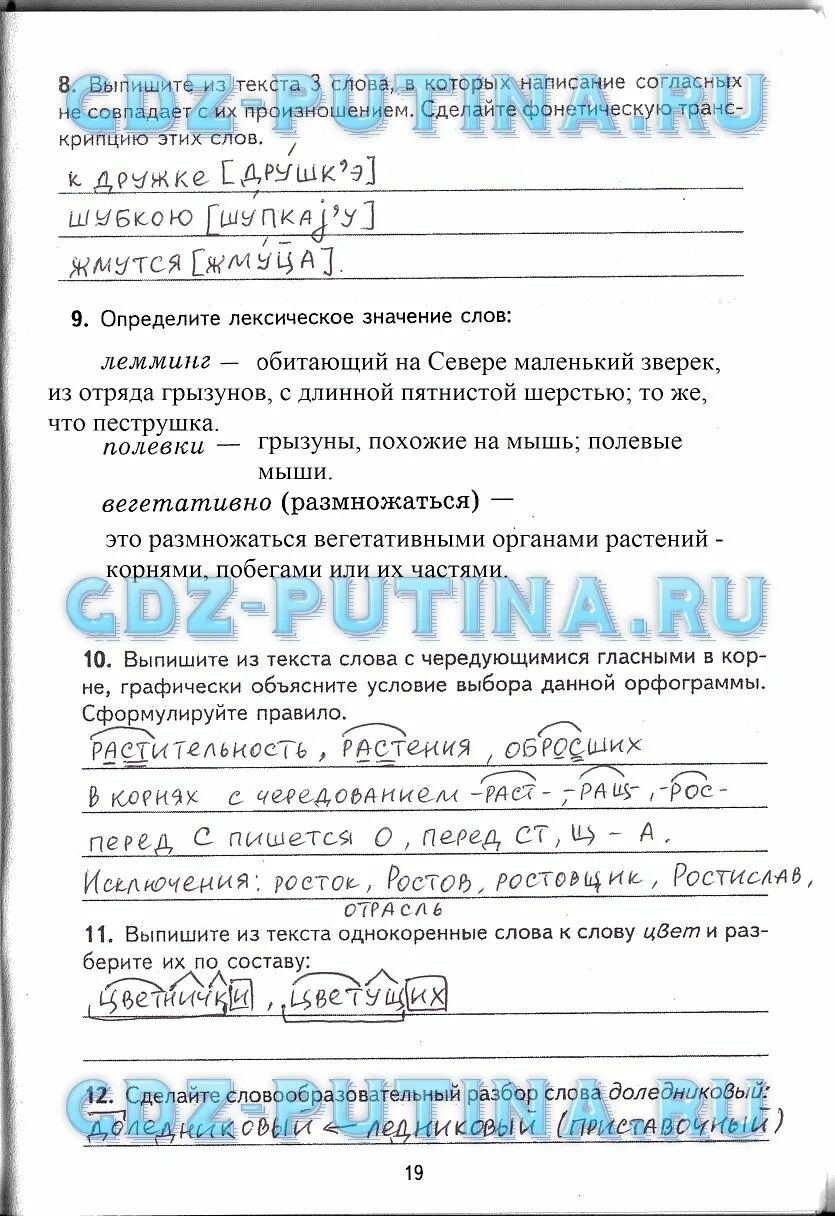 8. Выпишите из текста 3 слова, в которых написание согласных
GDZ-PUTINA.RU
не совпадает с их произношением. Сделайте фонетическую транс-
крипцию этих слов.
к дружке [друшк'э]
шубкою [шупкаj'у]
жмутся [жмуца].
9. Определите лексическое значение слов:
лемминг — обитающий на Севере маленький зверек,
из отряда грызунов, с длинной пятнистой шерстью; то же,
что пеструшка.
полевки — грызуны, похожие на мышь; полевые
мыши.
вегетативно (размножаться) —
это размножаться вегетативными органами растений -
корнями, побегами или их частями.
GDZ-PUTINA.RU
10. Выпишите из текста слова с чередующимися гласными в кор-
не, графически объясните условие выбора данной орфограммы.
Сформулируйте правило.
растительность, растения, обросших
В корнях с чередованием -раст-, -ращ-, -рос-
перед С пишется О, перед СТ, Щ - А.
Исключения: росток, Ростов, ростовщик, Ростислав,
отрасль
11. Выпишите из текста однокоренные слова к слову цвет и раз-
берите их по составу:
цветнички, цветущих
12. Сделайте словообразовательный разбор слова доледниковый:
GDZ-PUTINA.RU
доледниковый ← ледниковый (приставочный)
19